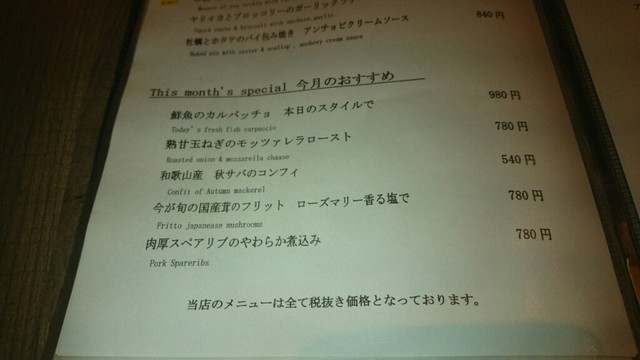 ヤリイカとブロッコリーのガーリックソテ
Squid saute & broccoli with anchovy,garlic
牡蠣とホタテのパイ包み焼き アンチョビクリームソース 840円
Baked pie with oyster & scallop , anchovy cream sauce
This month's special 今月のおすすめ
鮮魚のカルパッチョ 本日のスタイルで 980円
Today's fresh fish carpaccio
熟甘玉ねぎのモッツァレラロースト 780円
Roasted onion & mozzarella chaese
和歌山産 秋サバのコンフィ 540円
Confit of Autumn mackerel
今が旬の国産茸のフリット ローズマリー香る塩で 780円
Fritto japanease mushrooms
肉厚スペアリブのやわらか煮込み 780円
Pork Spareribs
当店のメニューは全て税抜き価格となっております。